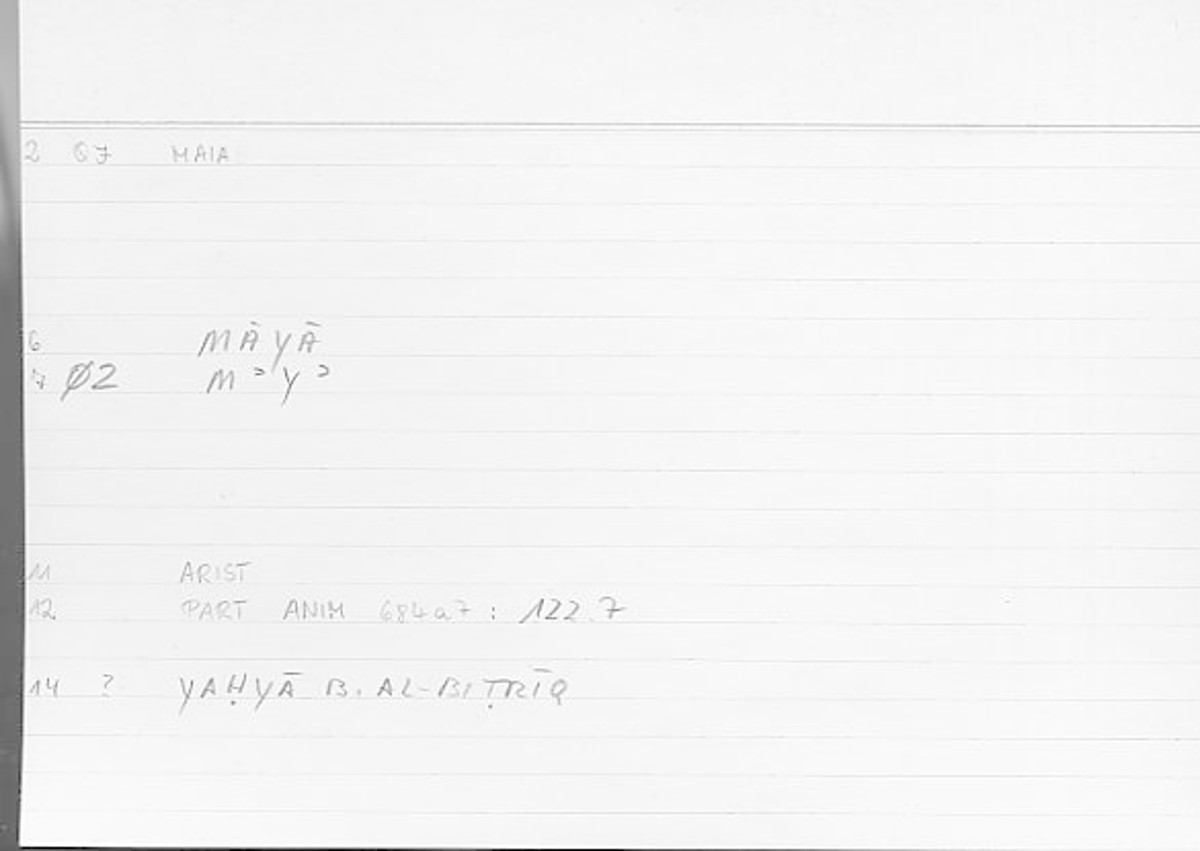 2 07 MAIA
6 MĀYĀ
7 Ø2 M ʾ Y ʾ
11 ARIST
12 PART ANIM 684a7 : 122.7
14 ? YAḤYĀ B. AL-BIṬRĪQ